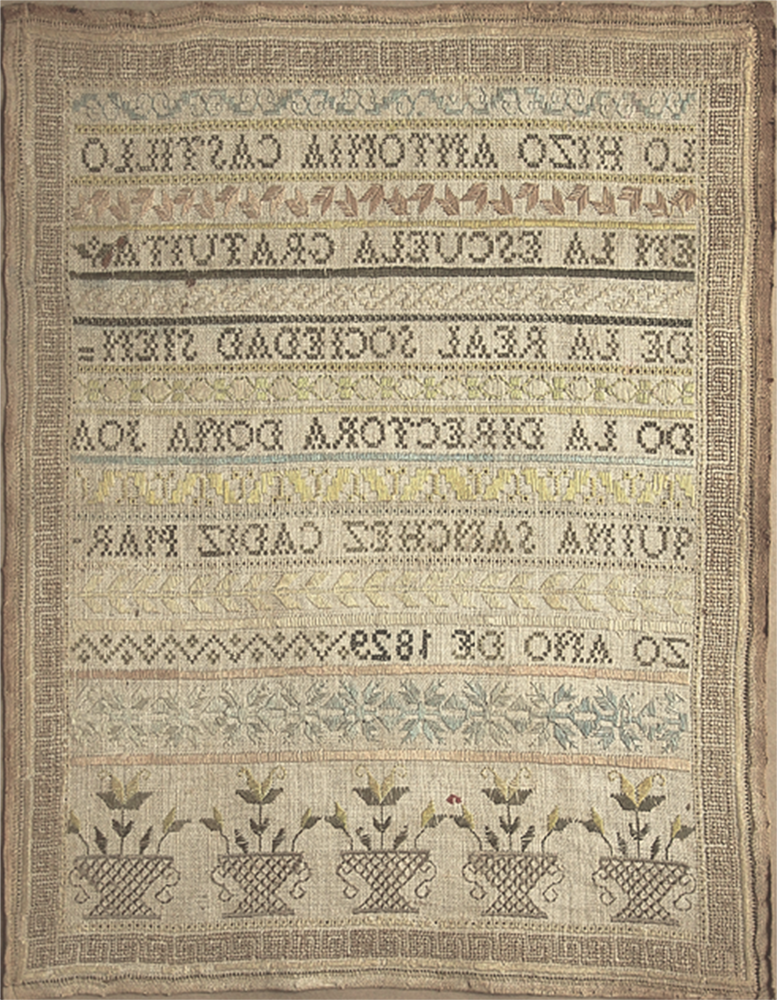 LO HIZO ANTONIA CASTILLO
EN LA ESCUELA GRATUITA
DE LA REAL SOCIEDAD SIEN=
DO LA DIRECTORA DOÑA JOA
QUINA SANCHEZ CADIZ MAR-
ZO AÑO DE 1829